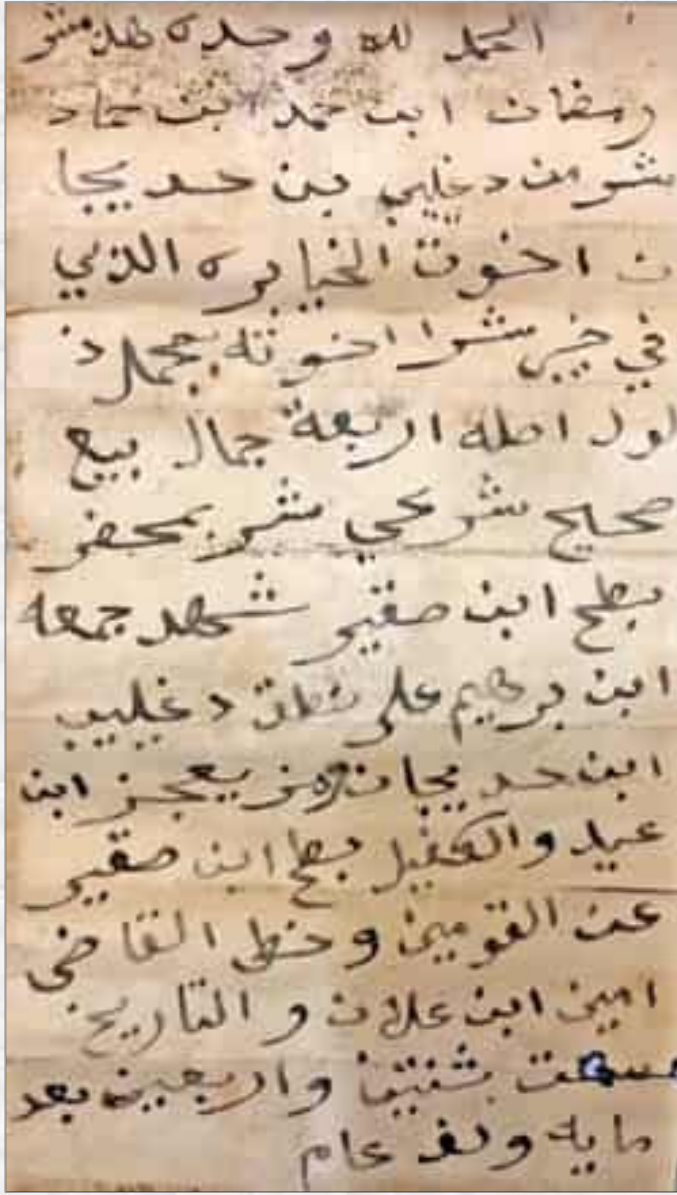 الحمد لله وحده هذ مشتر
رمضان ابن حمد بنت حماد
مشر من دغليب بن حديجا
ن اخوت الخيابره الذي
في خيبر شرا اخوته بجمل ذ
لول اصله اربعة جمال بيع
صحيح شرعي مشر بمحضر
بطح ابن صقير شهد جمعه
ابن برهيم على دغليب
ابن حديجان يعجز ابن
عيد والكفيل بطح ابن صقير
عن القومين وخطى القاضي
امين ابن علان والتاريخ
بثنتين واربعين بعد
مايه ولف عام